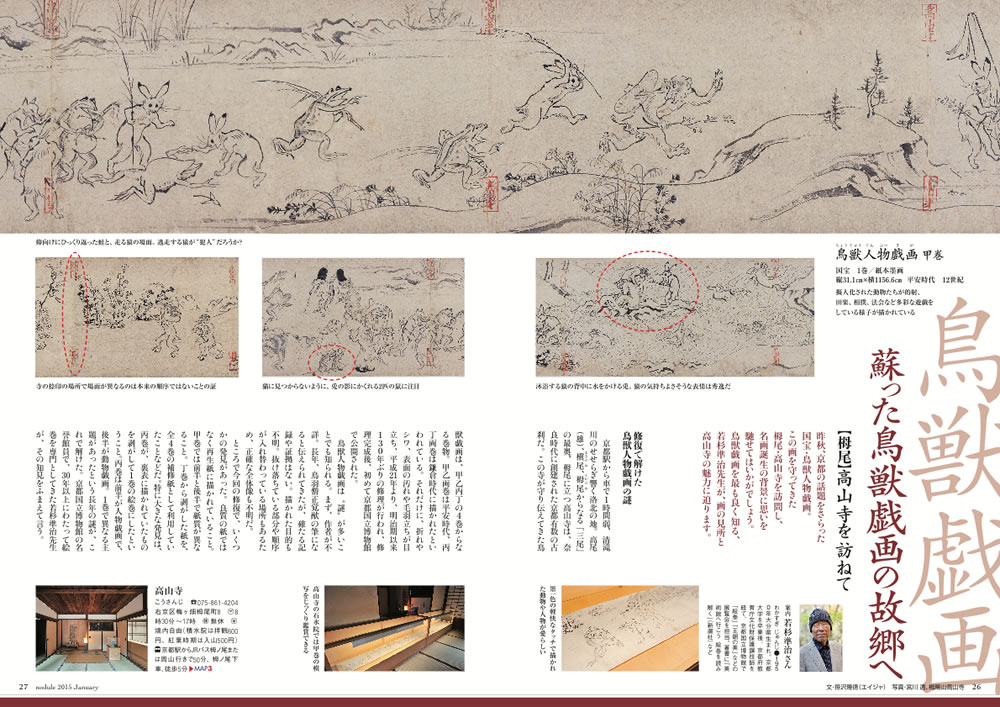 鳥獣戯画
蘇った鳥獣戯画の故郷へ
【栂尾】高山寺を訪ねて
鳥獣人物戯画 甲巻
国宝 1巻／紙本墨画
縦31.1cm×横1156.6cm 平安時代 12世紀
擬人化された動物たちが的射、
田楽、相撲、法会など多彩な遊戯を
している様子が描かれている
仰向けにひっくり返った蛙と、走る猿の場面。逃走する猿が“犯人”だろうか？
沐浴する猿の背中に水をかける兎。猿の気持ちよさそうな表情は秀逸だ
猫に見つからないように、兎の影にかくれる2匹の鼠に注目
寺の捺印の場所で場面が異なるのは本来の順序ではないことの証
昨秋、京都の話題をさらった
国宝・鳥獣人物戯画。
この画を守ってきた
栂尾・高山寺を訪問し、
名画誕生の背景に思いを
馳せてはいかがでしょう。
鳥獣戯画を最も良く知る、
若杉準治先生が、画の見所と
高山寺の魅力に迫ります。
修復で解けた
鳥獣人物戯画の謎
京都駅から車で1時間弱、清滝
川のせせらぎ響く洛北の地。高尾
（雄）、槇尾、栂尾からなる「三尾」
の最奥、栂尾に立つ高山寺は、奈
良時代に創建された京都有数の古
刹だ。この寺が守り伝えてきた鳥
獣戯画は、甲乙丙丁の4巻からな
る巻物。甲乙両巻は平安時代、丙
丁両画巻は鎌倉時代に描かれたとい
われている。それだけに、折れや
シワ、表面の汚れや毛羽立ちが目
立ち、平成21年より、明治期以来
130年ぶりの修理が行われ、修
理完成後、初めて京都国立博物館
で公開された。
鳥獣人物戯画は“謎”が多いこ
とでも知られる。まず、作者が不
詳。長年、鳥羽僧正覚猷の筆にな
ると伝えられてきたが、確たる記
録や証拠はない。描かれた目的も
不明。抜け落ちている部分や順序
が入れ替わっている場所もあるた
め、正確な全体像も不明だ。
ところで今回の修復で、いくつ
かの発見があった。良質の紙では
なく再生紙に描かれていること。
甲巻では前半と後半で紙質が異な
ること。丁巻から剥がした紙を、
全4巻の補修紙として利用してい
たことなどだ。特に大きな発見は、
丙巻が、裏表に描かれていたもの
を剥がして1巻の絵巻にしたとい
うこと。丙巻は前半が人物戯画で、
後半が動物戯画。1巻で異なる主
題があったという長年の謎が、こ
れで解けた。京都国立博物館の名
誉館員で、30年以上にわたって絵
巻を専門としてきた若杉準治先生
が、その知見をふまえて言う。
案内 若杉準治さん
第一色の軽快なタッチで描かれ
た動物や人物が愛らしい
高山寺の石水院では甲巻の模
写をじっくり鑑賞できる
高山寺
こうさんじ ☎075-861-4204
右京区梅ヶ畑栂尾町8 8
時30分～17時 無休
境内自由（石水院は拝観800
円、紅葉時期は入山500円）
京都駅からJRバス栂ノ尾また
は周山行きで50分、栂ノ尾下
車、徒歩5分 ▶MAP3
27 nodule 2015 January
文・笹沢隆徳（エイジャ） 写真・宮川 透、栂尾山高山寺 26